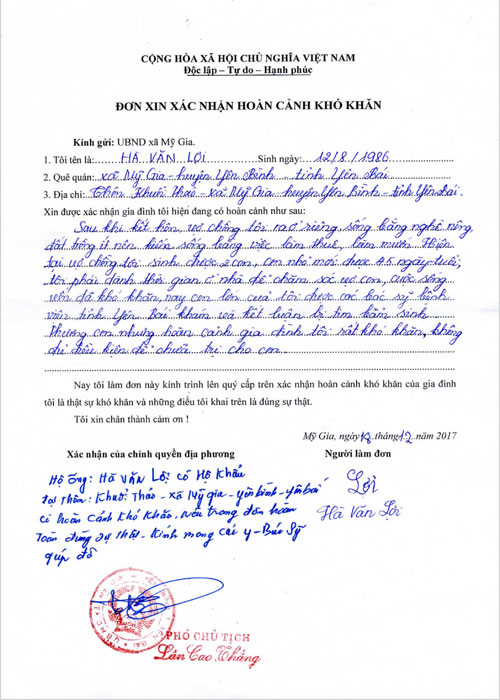 CỘNG HÒA XÃ HỘI CHỦ NGHĨA VIỆT NAM
Độc lập – Tự do – Hạnh phúc
ĐƠN XIN XÁC NHẬN HOÀN CẢNH KHÓ KHĂN
Kính gửi: UBND xã Mỹ Gia.
1. Tôi tên là: HÀ VĂN LỢI Sinh ngày: 12/8/1986
2. Quê quán: xã Mỹ Gia - huyện Yên Bình - tỉnh Yên Bái
3. Địa chỉ: Thôn Khuổi Thao - xã Mỹ Gia - huyện Yên Bình - tỉnh Yên Bái.
Xin được xác nhận gia đình tôi hiện đang có hoàn cảnh như sau:
Sau khi kết hôn, vợ chồng tôi ra ở riêng, sống bằng nghề nông,
đất trồng ít nên kiếm sống bằng việc làm thuê, làm mướn. Hiện
tại vợ chồng tôi sinh được 2 con, con nhỏ mới được 45 ngày tuổi,
tôi phải dành thời gian ở nhà để chăm sóc vợ con, cuộc sống
vốn đã khó khăn, nay con lớn của tôi được các bác sỹ bệnh
viện tỉnh Yên Bái khám và kết luận bị tim bẩm sinh.
Thương con nhưng hoàn cảnh gia đình tôi rất khó khăn, không
đủ điều kiện để chữa trị cho con.
Nay tôi làm đơn này kính trình lên quý cấp trên xác nhận hoàn cảnh khó khăn của gia đình
tôi là thật sự khó khăn và những điều tôi khai trên là đúng sự thật.
Tôi xin chân thành cảm ơn !
Mỹ Gia, ngày 18 tháng 12 năm 2017
Xác nhận của chính quyền địa phương Người làm đơn
Hộ ông: Hà Văn Lợi có Hộ Khẩu
tại Thôn: Khuổi Thao - xã Mỹ gia - yên bình - yên bái
Có hoàn cảnh khó khăn, nêu trong đơn hoàn
Toàn đúng sự thật - Kính mong các y - Bác Sỹ
giúp đỡ
Lợi
Hà Văn Lợi
PHÓ CHỦ TỊCH
Cao Thắng